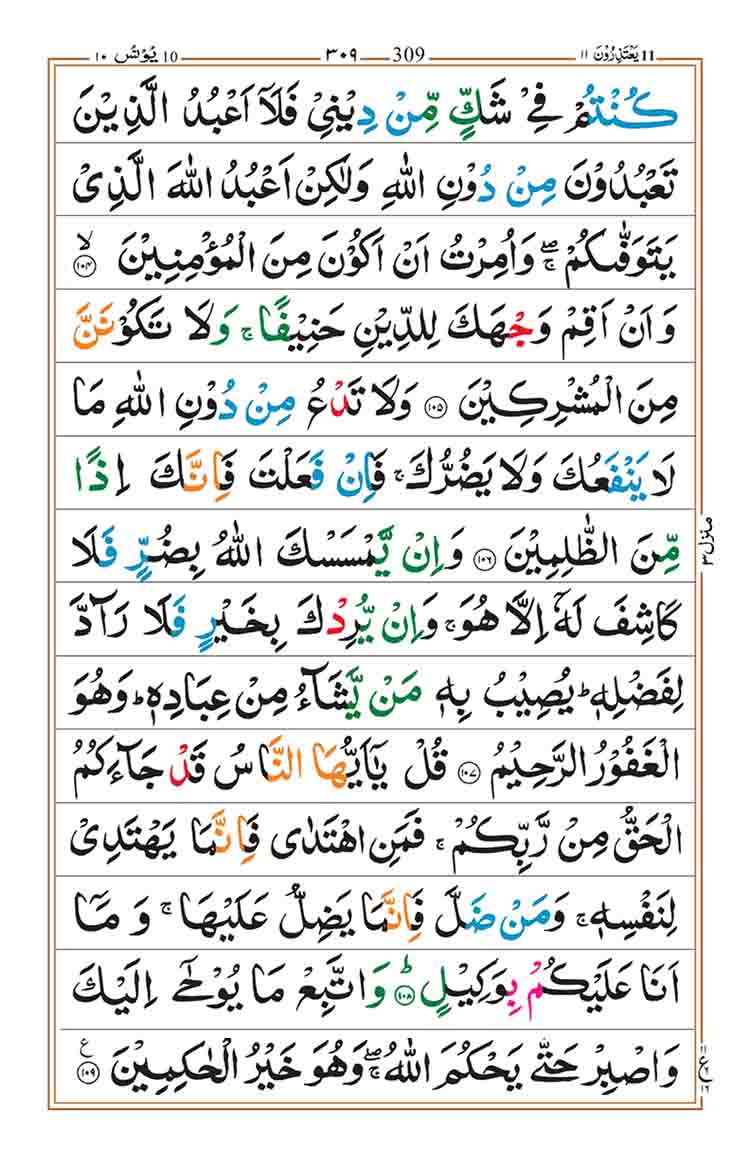 11 یَعْتَذِرُوْنَ ۱۱ 309 ۳۰۹ 10 یُوْنُسَ ۱۰
كُنْتُمْ فِیْ شَكٍّ مِّنْ دِیْنِیْ فَلَاۤ اَعْبُدُ الَّذِیْنَ
تَعْبُدُوْنَ مِنْ دُوْنِ اللّٰهِ وَلٰكِنْ اَعْبُدُ اللّٰهَ الَّذِیْ
یَتَوَفّٰىكُمْ ۖۚ وَاُمِرْتُ اَنْ اَكُوْنَ مِنَ الْمُؤْمِنِیْنَ ۙ‏ ﴿۱۰۴﴾
وَاَنْ اَقِمْ وَجْهَكَ لِلدِّیْنِ حَنِیْفًا ۚ وَلَا تَكُوْنَنَّ
مِنَ الْمُشْرِكِیْنَ ﴿۱۰۵﴾ وَلَا تَدْعُ مِنْ دُوْنِ اللّٰهِ مَا
لَا یَنْفَعُكَ وَلَا یَضُرُّكَ ۚ فَاِنْ فَعَلْتَ فَاِنَّكَ اِذًا
مِّنَ الظّٰلِمِیْنَ ﴿۱۰۶﴾ وَاِنْ یَّمْسَسْكَ اللّٰهُ بِضُرٍّ فَلَا
كَاشِفَ لَهٗۤ اِلَّا هُوَ ۚ وَاِنْ یُّرِدْكَ بِخَیْرٍ فَلَا رَآدَّ
لِفَضْلِهٖ ؕ یُصِیْبُ بِهٖ مَنْ یَّشَآءُ مِنْ عِبَادِهٖ ؕ وَهُوَ
الْغَفُوْرُ الرَّحِیْمُ ﴿۱۰۷﴾ قُلْ یٰۤاَیُّهَا النَّاسُ قَدْ جَآءَكُمُ
الْحَقُّ مِنْ رَّبِّكُمْ ۚ فَمَنِ اهْتَدٰی فَاِنَّمَا یَهْتَدِیْ
لِنَفْسِهٖ ۚ وَمَنْ ضَلَّ فَاِنَّمَا یَضِلُّ عَلَیْهَا ۚ وَمَاۤ
اَنَا عَلَیْكُمْ بِوَكِیْلٍ ؕ ﴿۱۰۸﴾ وَاتَّبِعْ مَا یُوْحٰۤی اِلَیْكَ
وَاصْبِرْ حَتّٰی یَحْكُمَ اللّٰهُ ۖۚ وَهُوَ خَیْرُ الْحٰكِمِیْنَ ﴿۱۰۹﴾ ع
منزل ۳
۱۱ ع ۱۶